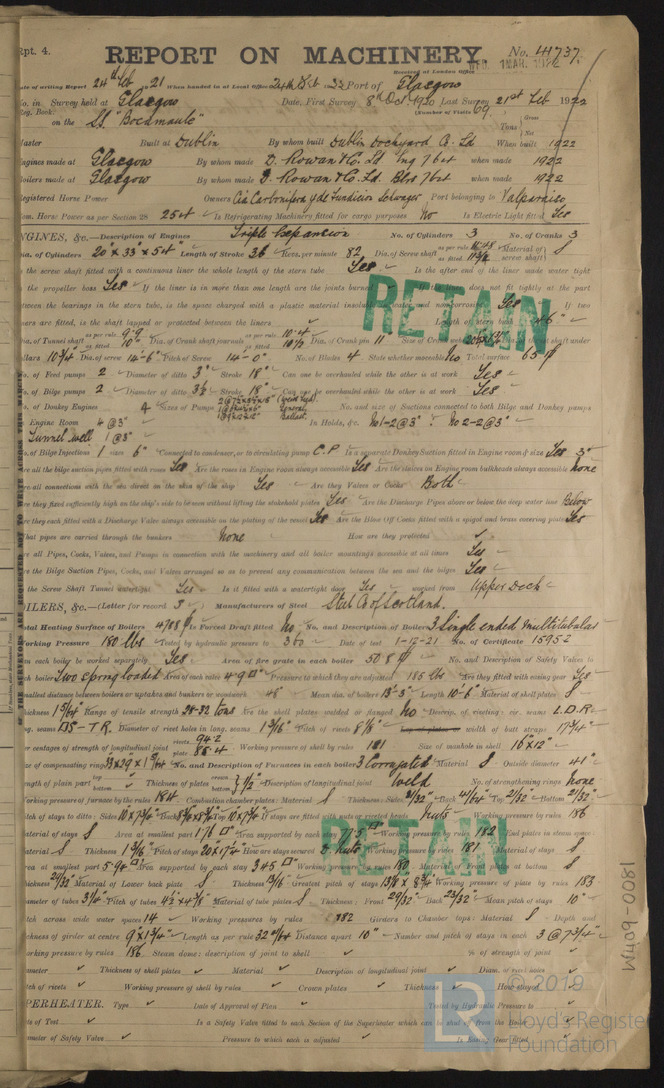 Rpt. 4.
REPORT ON MACHINERY
No. 41737
Received at London Office
WED. 1 MAR. 1922
Date of writing Report 24th Feb 21 When handed in at Local Office 24th Oct 22 Port of Glasgow
No. in Survey held at Glasgow Date, First Survey 8th Oct 1920 Last Survey 21st Feb 1922
Reg. Book. (Number of Visits 69
on the S.S. "Bocamaule" Tons Gross Net
Master Built at Dublin By whom built Dublin Dockyard Co. Ld When built 1922
Engines made at Glasgow By whom made D. Rowan & Co. Ld Eng 7 bet when made 1922
Boilers made at Glasgow By whom made D. Rowan & Co. Ld. Blrs 7 bet when made 1922
Registered Horse Power Owners Cia Carbonifera y de Fundicion Schwager Port belonging to Valparaiso
Nom. Horse Power as per Section 28 254 Is Refrigerating Machinery fitted for cargo purposes No Is Electric Light fitted Yes
ENGINES, &c.—Description of Engines Triple Expansion No. of Cylinders 3 No. of Cranks 3
Dia. of Cylinders 20" x 33" x 54" Length of Stroke 36 Revs. per minute 82 Dia. of Screw shaft as per rule 11.48 as fitted Material of screw shaft S
Is the screw shaft fitted with a continuous liner the whole length of the stern tube Yes Is the after end of the liner made water tight
in the propeller boss Yes If the liner is in more than one length are the joints burned If the liner does not fit tightly at the part
between the bearings in the stern tube, is the space charged with a plastic material insoluble in water and non-corrosive Yes If two
liners are fitted, is the shaft lapped or protected between the liners Length of stern bush 46"
Dia. of Tunnel shaft as per rule 9.9 as fitted 10" Dia. of Crank shaft journals as per rule 10.4 as fitted 10½ Dia. of Crank pin 11" Size of Crank webs Dia. of thrust shaft under
collars 10¾" Dia. of screw 14'-6" Pitch of Screw 14'-0" No. of Blades 4 State whether moveable No Total surface 65
No. of Feed pumps 2 Diameter of ditto 3" Stroke 18" Can one be overhauled while the other is at work Yes
No. of Bilge pumps 2 Diameter of ditto 3½ Stroke 18" Can one be overhauled while the other is at work Yes
No. of Donkey Engines 4 Sizes of Pumps General Ballast No. and size of Suctions connected to both Bilge and Donkey pumps
In Engine Room 4 @ 3" In Holds, &c. No 1-2 @ 3" No 2-2 @ 3"
Tunnel well 1 @ 3"
No. of Bilge Injections 1 sizes 6" Connected to condenser, or to circulating pump C.P. Is a separate Donkey Suction fitted in Engine room & size Yes 3"
Are all the bilge suction pipes fitted with roses Yes Are the roses in Engine room always accessible Yes Are the sluices on Engine room bulkheads always accessible none
Are all connections with the sea direct on the skin of the ship Yes Are they Valves or Cocks Both
Are they fixed sufficiently high on the ship's side to be seen without lifting the stokehold plates Yes Are the Discharge Pipes above or below the deep water line Below
Are they each fitted with a Discharge Valve always accessible on the plating of the vessel Yes Are the Blow Off Cocks fitted with a spigot and brass covering plate Yes
What pipes are carried through the bunkers None How are they protected
Are all Pipes, Cocks, Valves, and Pumps in connection with the machinery and all boiler mountings accessible at all times Yes
Are the Bilge Suction Pipes, Cocks, and Valves arranged so as to prevent any communication between the sea and the bilges Yes
Is the Screw Shaft Tunnel watertight Yes Is it fitted with a watertight door Yes worked from Upper Deck
BOILERS, &c.—(Letter for record S Manufacturers of Steel Steel Co of Scotland.
Total Heating Surface of Boilers 4788 Is Forced Draft fitted No No. and Description of Boilers 3 Single ended multitubular
Working Pressure 180 lbs Tested by hydraulic pressure to 360 Date of test 1-12-21 No. of Certificate 15952
Can each boiler be worked separately Yes Area of fire grate in each boiler 50.8 No. and Description of Safety Valves to
each boiler Two spring loaded Area of each valve 4.9 Pressure to which they are adjusted 185 lbs Are they fitted with easing gear Yes
Smallest distance between boilers or uptakes and bunkers or woodwork Mean dia. of boilers 13'-3" Length 10'-6" Material of shell plates S
Thickness 1 5/64" Range of tensile strength 28-32 tons Are the shell plates welded or flanged No Descrip. of riveting: cir. seams L.D.R.
long. seams DS-T R. Diameter of rivet holes in long. seams 1 3/16" Pitch of rivets 8⅛" width of butt straps 17¾"
Per centages of strength of longitudinal joint rivets 94.2 plate 85.4 Working pressure of shell by rules 181 Size of manhole in shell 16" x 12"
Size of compensating ring No. and Description of Furnaces in each boiler 3 Corrugated Material S Outside diameter 41"
Length of plain part top bottom Thickness of plates crown bottom ½" Description of longitudinal joint Weld No. of strengthening rings none
Working pressure of furnace by the rules 184 Combustion chamber plates: Material S Thickness: Sides 21/32" Back 41/64" Top 21/32" Bottom 21/32"
Pitch of stays to ditto: Sides 10 x 7¾" Back Top 10 x 7¾" If stays are fitted with nuts or riveted heads Nuts Working pressure by rules 186
Material of stays S Area at smallest part 1.71 Area supported by each stay 77.5 Working pressure by rules 182 End plates in steam space:
Material S Thickness 1 3/16" Pitch of stays 20" x 17¼" How are stays secured D. Nuts Working pressure by rules 181 Material of stays S
Area at smallest part 5.94 Area supported by each stay 345 Working pressure by rules 180 Material of Front plates at bottom S
Thickness 29/32" Material of Lower back plate S Thickness 13/16" Greatest pitch of stays Working pressure of plate by rules 183
Diameter of tubes 3¼" Pitch of tubes 4½ x 4⅜" Material of tube plates S Thickness: Front 29/32" Back 25/32" Mean pitch of stays 10"
Pitch across wide water spaces 14 Working pressures by rules 182 Girders to Chamber tops: Material S Depth and
thickness of girder at centre 9" x 1¾" Length as per rule Distance apart 10" Number and pitch of stays in each 3 @ 7¾"
Working pressure by rules 186 Steam dome: description of joint to shell % of strength of joint
Diameter Thickness of shell plates Material Description of longitudinal joint Diam. of rivet holes
Pitch of rivets Working pressure of shell by rules Crown plates Thickness How stayed
SUPERHEATER. Type Date of Approval of Plan Tested by Hydraulic Pressure to
Date of Test Is a Safety Valve fitted to each Section of the Superheater which can be shut off from the Boiler
Diameter of Safety Valve Pressure to which each is adjusted Is Easing Gear fitted
RETAIN
RETAIN
© 2019
Lloyd's Register
Foundation